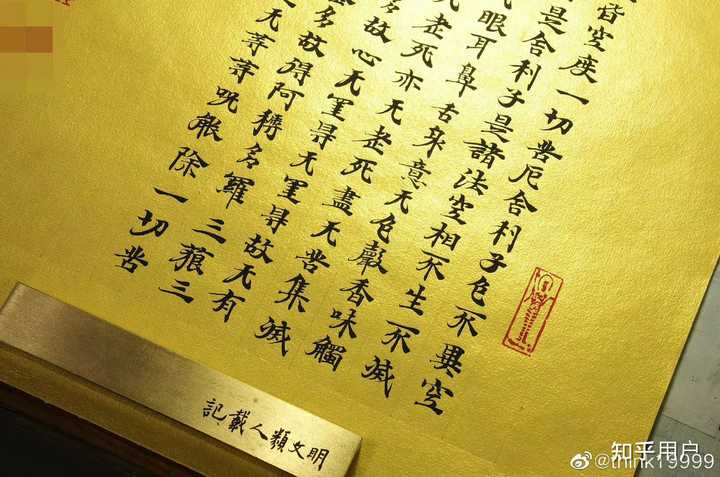 皆空度一切苦厄舍利子色不異空
是舍利子是諸法空相不生不滅
眼耳鼻舌身意无色聲香味觸
无老死亦无老死盡无苦集滅
多故心无罣㝵无罣㝵故无有
多故得阿耨多羅三藐三
无等等呪能除一切苦
記載人類文明
知乎用户
@think19999